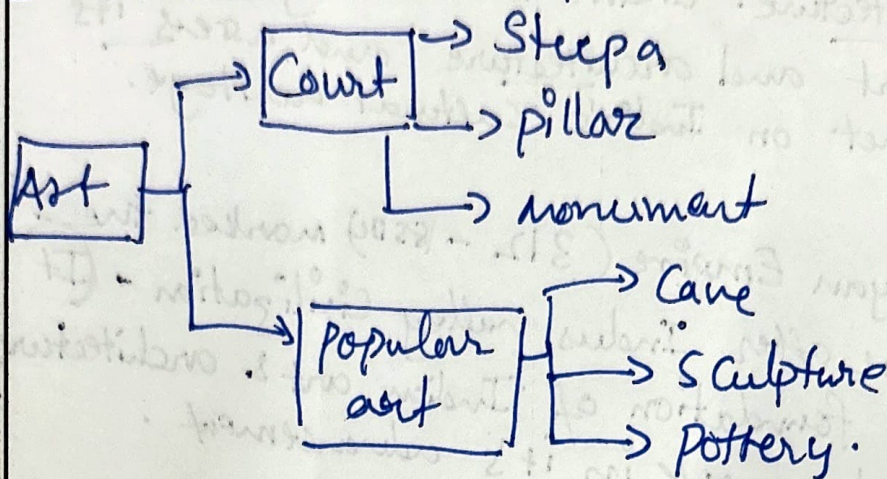 Art
Court
Stupa
pillar
monument
popular
art
Cave
Sculpture
Pottery.